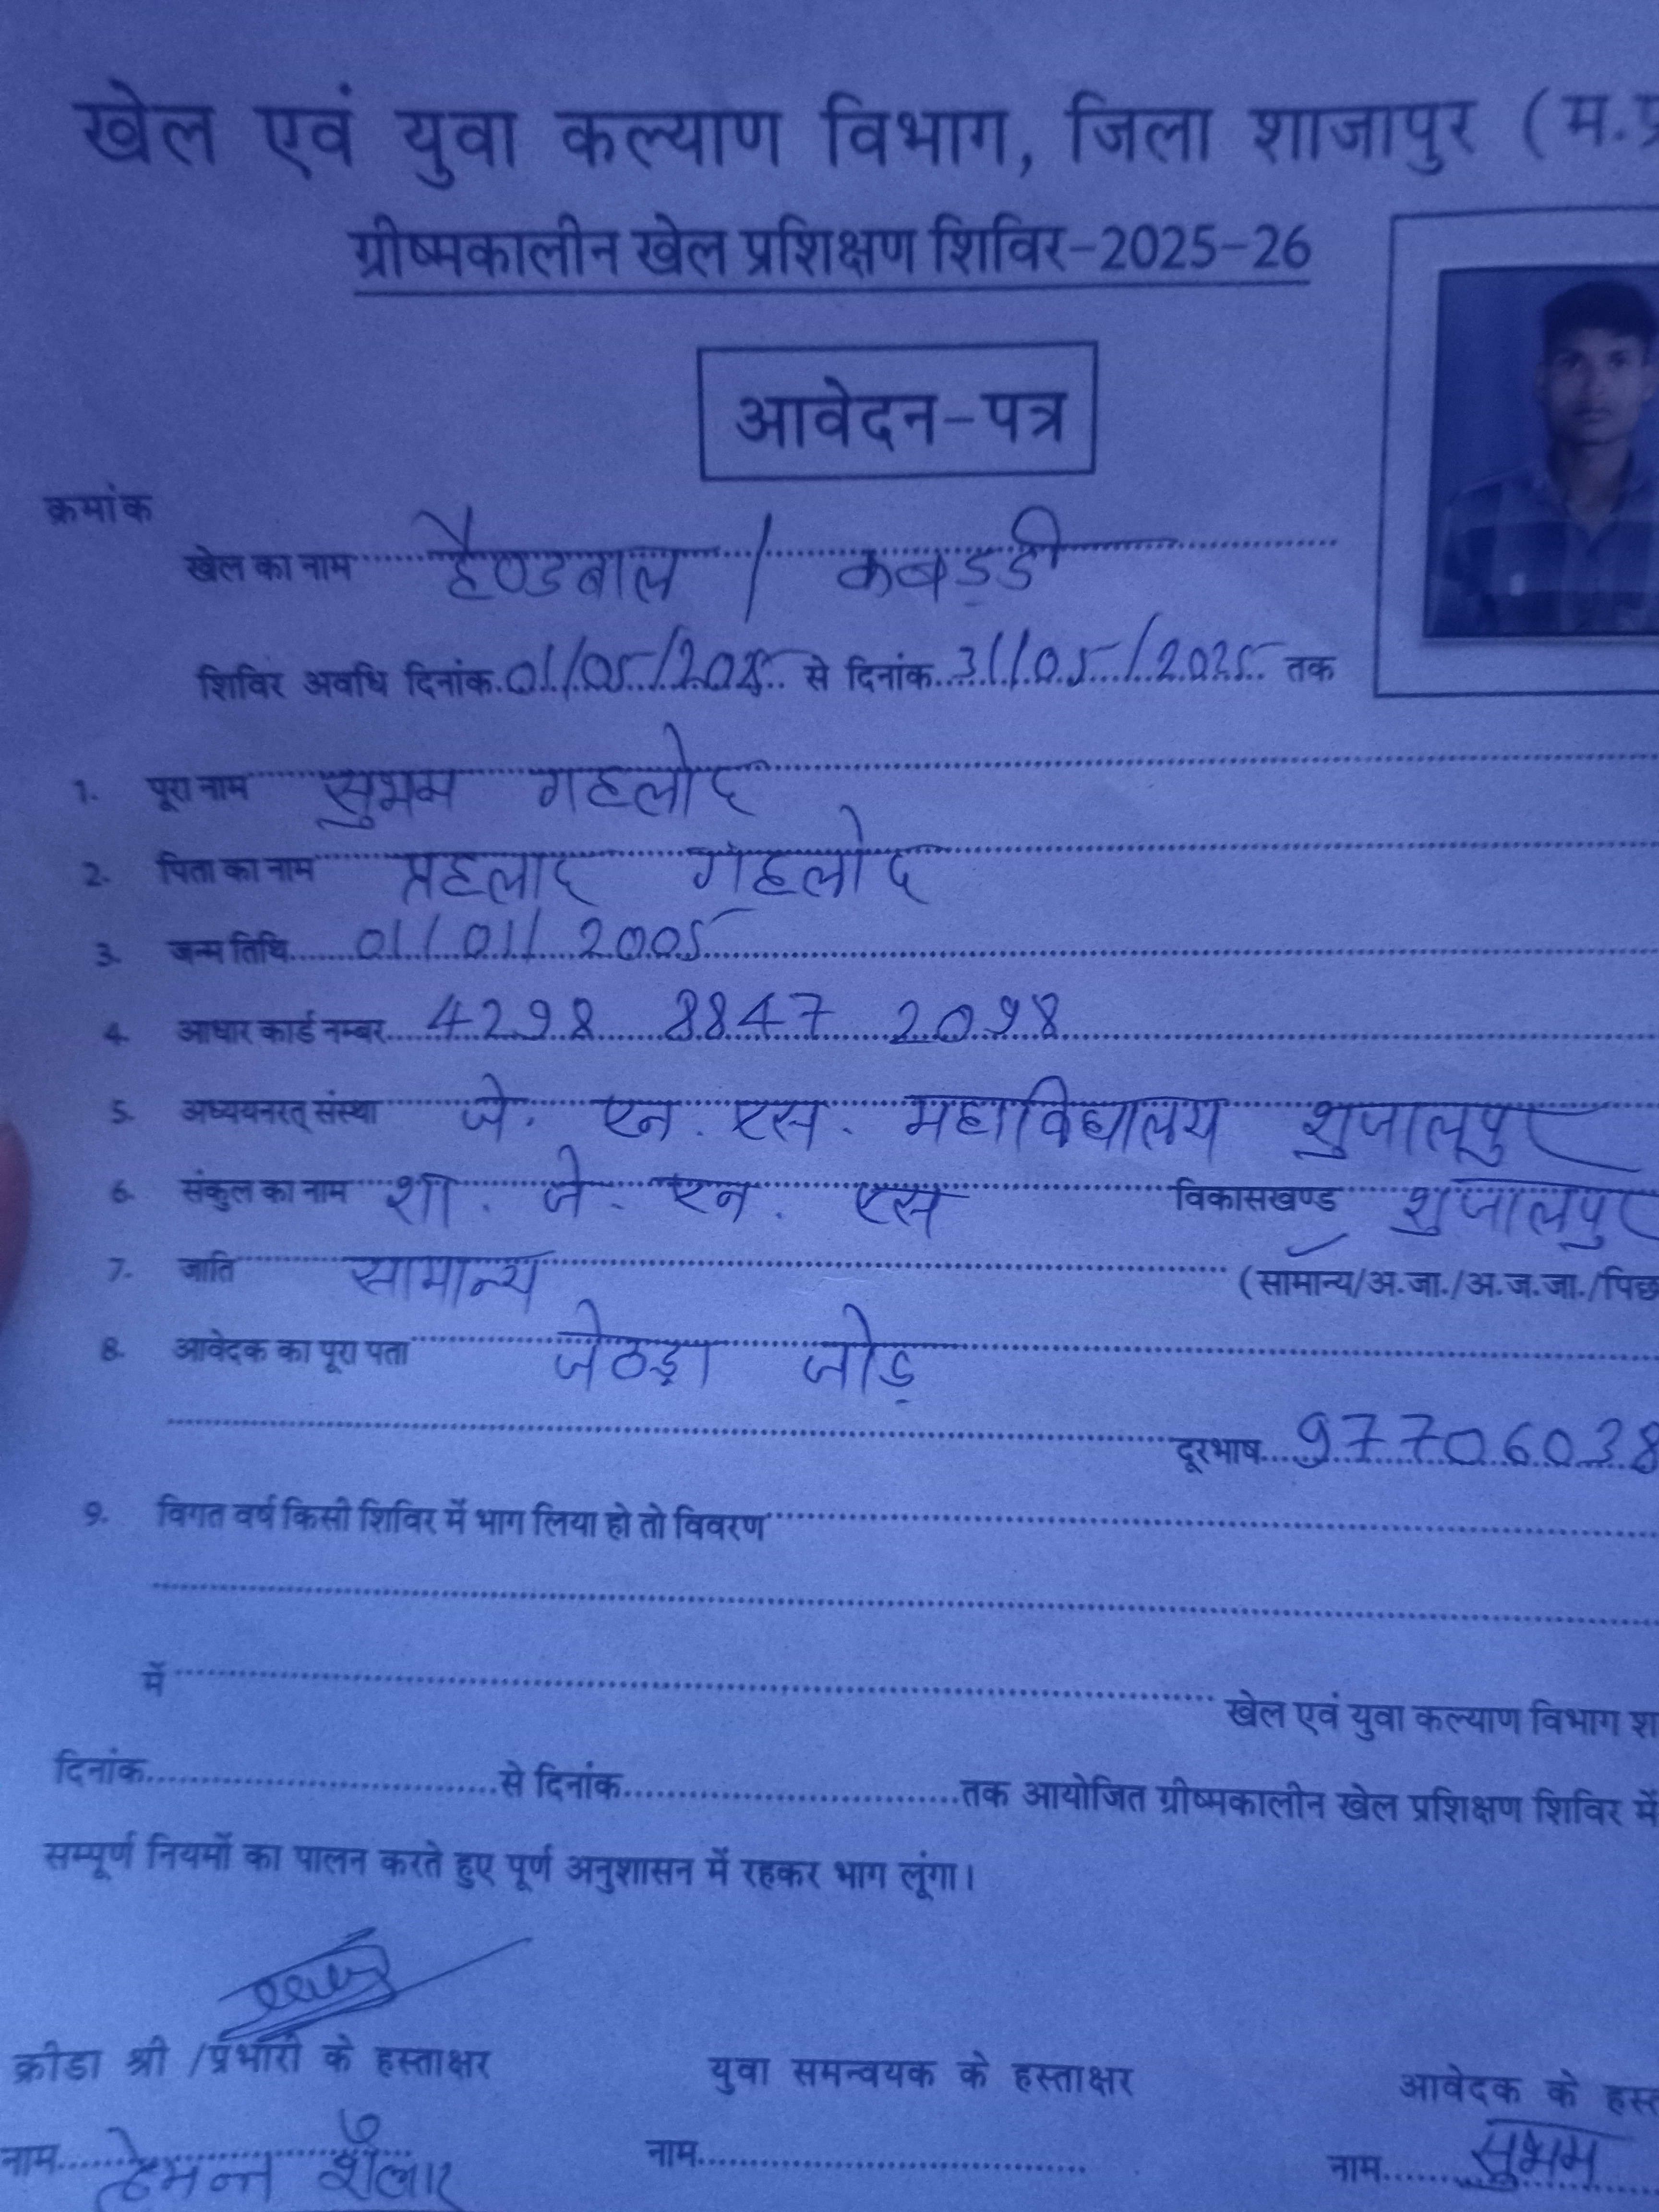 खेल एवं युवा कल्याण विभाग, जिला शाजापुर (म.प्र
ग्रीष्मकालीन खेल प्रशिक्षण शिविर-2025-26
आवेदन-पत्र
क्रमांक
खेल का नाम हैण्डबाल / कबड़डी
शिविर अवधि दिनांक 01/05/2025 से दिनांक 31/05/2025 तक
1. पूरा नाम सुभम गहलोद
2. पिता का नाम प्रहलाद गहलोद
3. जन्म तिथि 01/01/2005
4. आधार कार्ड नम्बर 4298 8847 2098
5. अध्ययनरत् संस्था जे. एन. एस. महाविद्यालय शुजालपुर
6. संकुल का नाम शा. जे. एन. एस विकासखण्ड शुजालपुर
7. जाति सामान्य (सामान्य/अ.जा./अ.ज.जा./पिछ
8. आवेदक का पूरा पता जेठड़ा जोड़
दूरभाष 97706038
9. विगत वर्ष किसी शिविर में भाग लिया हो तो विवरण
में खेल एवं युवा कल्याण विभाग शा
दिनांक से दिनांक तक आयोजित ग्रीष्मकालीन खेल प्रशिक्षण शिविर में
सम्पूर्ण नियमों का पालन करते हुए पूर्ण अनुशासन में रहकर भाग लूंगा।
क्रीडा श्री /प्रभारी के हस्ताक्षर युवा समन्वयक के हस्ताक्षर आवेदक के हस्त
नाम हेमन्त नाम नाम सुभम